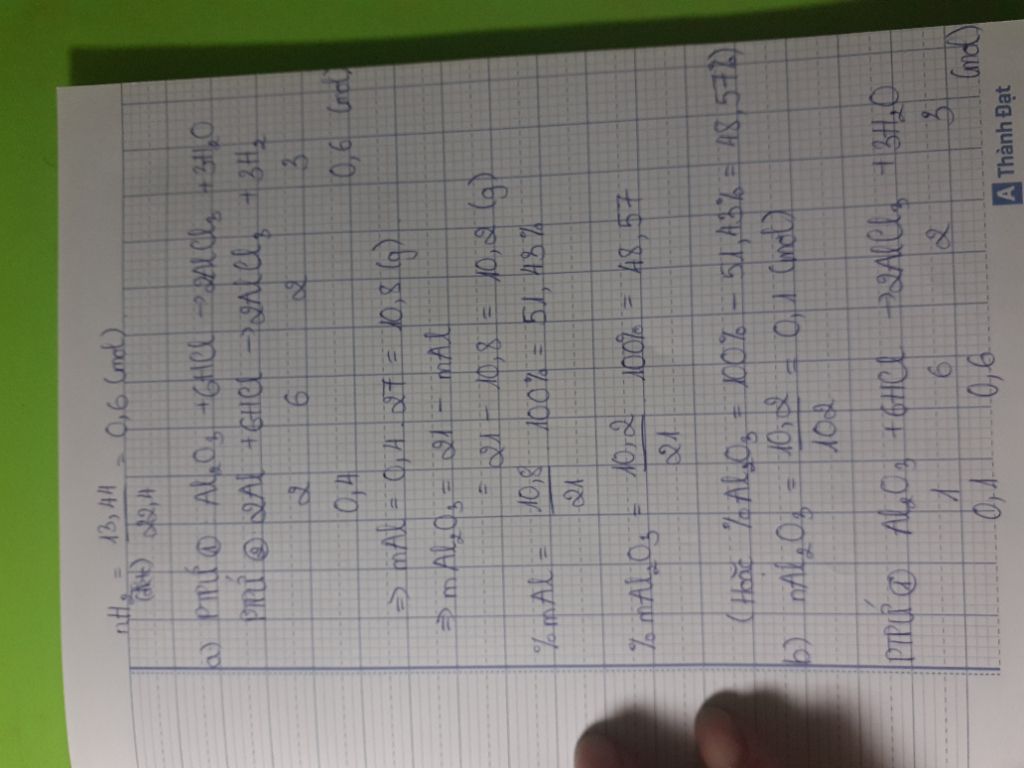 nH₂ = 13,44 / 22,4 = 0,6 (mol)
(đktc)
a) PTPƯ ① Al₂O₃ + 6HCl → 2AlCl₃ + 3H₂O
PTPƯ ② 2Al + 6HCl → 2AlCl₃ + 3H₂
2 6 2 3
0,4 0,6 (mol)
=> mAl = 0,4 . 27 = 10,8 (g)
=> mAl₂O₃ = 21 - mAl
= 21 - 10,8 = 10,2 (g)
% mAl = 10,8 / 21 100% = 51,43%
% mAl₂O₃ = 10,2 / 21 100% = 48,57
(Hoặc %Al₂O₃ = 100% - 51,43% = 48,57%)
b) nAl₂O₃ = 10,2 / 102 = 0,1 (mol)
PTPƯ ① Al₂O₃ + 6HCl → 2AlCl₃ + 3H₂O
1 6 2 3
0,1 0,6 (mol)
A Thành Đạt